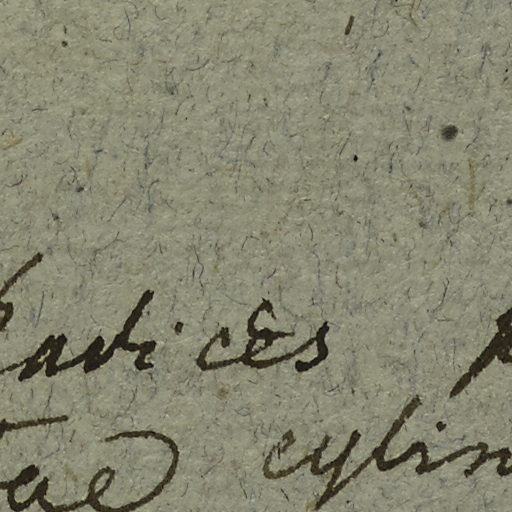 Radices
tae cylin